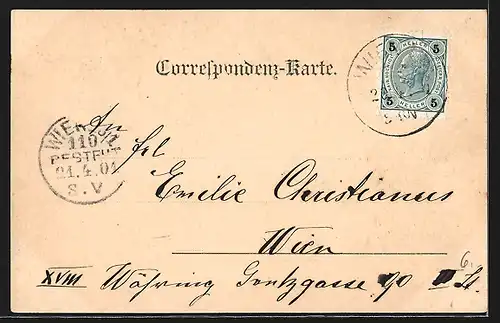 Correspondenz-Karte.
WIEN
5 5
HELLER
5 5
HELLER
WIEN
110
BESTELLT
21.4.01
8.V
An Frl
Emilie Christianus
Wien
XVIII Währing Gentzgasse